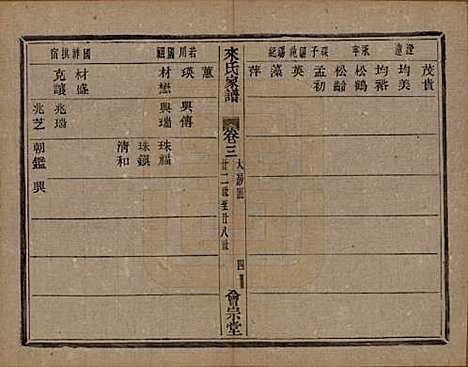 澄 遠 承 寧 瑛 子 關 苑 關 紀
茂貴
均美
均裕
松鶴
松齡
孟初
英
藻
萍
來氏家譜
卷三
大房圖
廿二世至廿八世
四
會宗堂
若川 國祖
國祥 撰宿
蕙
瑛
材懋
興傳
興瑞
珠福
珠鎮
清和
材盛
克讓
兆瑞
兆芝
朝鑑
興